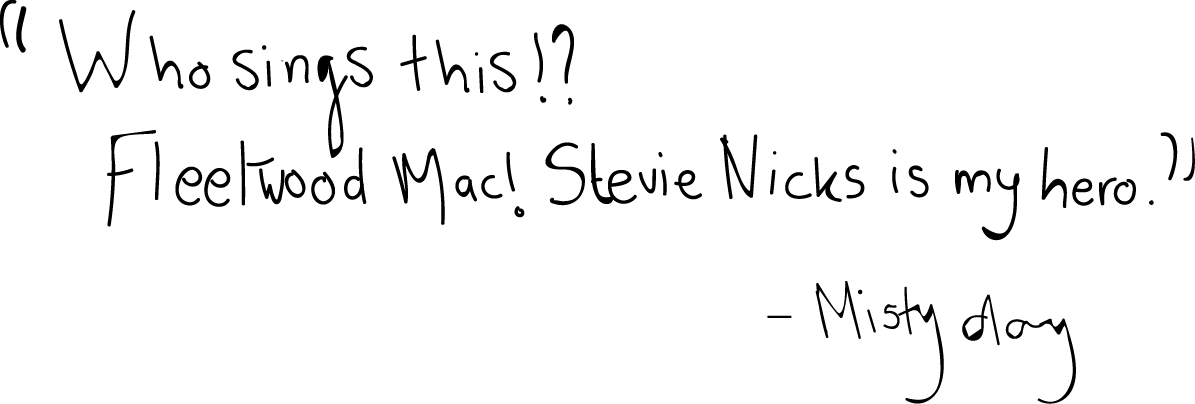 "Who sings this!?
Fleetwood Mac! Stevie Nicks is my hero."
- Misty day